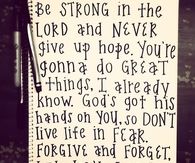 BE STRONG in the
LORD and NEVER
give up hope. You're
gonna do GREAT
things, I already
know. God's got his
hands on You, so DON'T
live life in FEAR.
FORGIVE and FORGET.